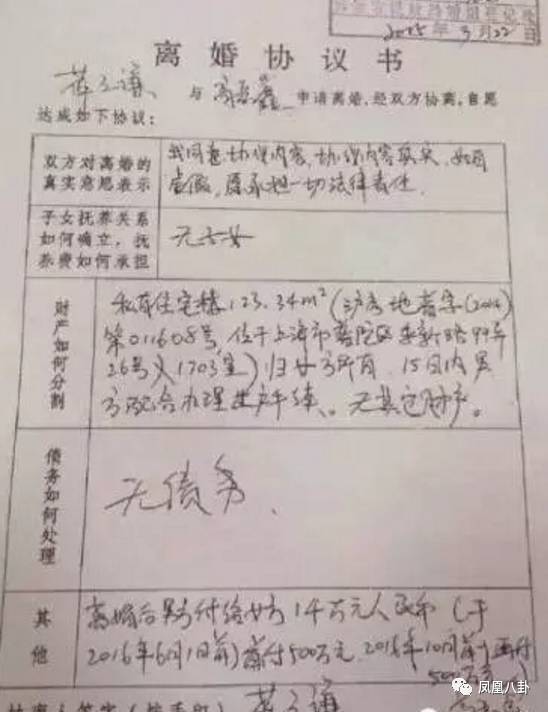 2015年3月22日
离婚协议书
与 申请离婚,经双方协商,自愿
达成如下协议:
双方对离婚的
真实意思表示
我同意协议内容,协议内容真实,如有
虚假,愿承担一切法律责任.
子女抚养关系
如何确立,抚
养费如何承担
无子女
财产如何分割
私有住宅楼123.34m²(沪房地普字(2014)
第011608号,位于上海市普陀区 新路99弄
26号 1703室)归女方所有,15日内男
方配合办理过户手续、无其它财产。
债务如何处理
无债务.
其他
离婚后男方付给女方1千万元人民币(于
2016年6月1日前)首付500万元,2016年10月前 再付
500万
凤凰八卦